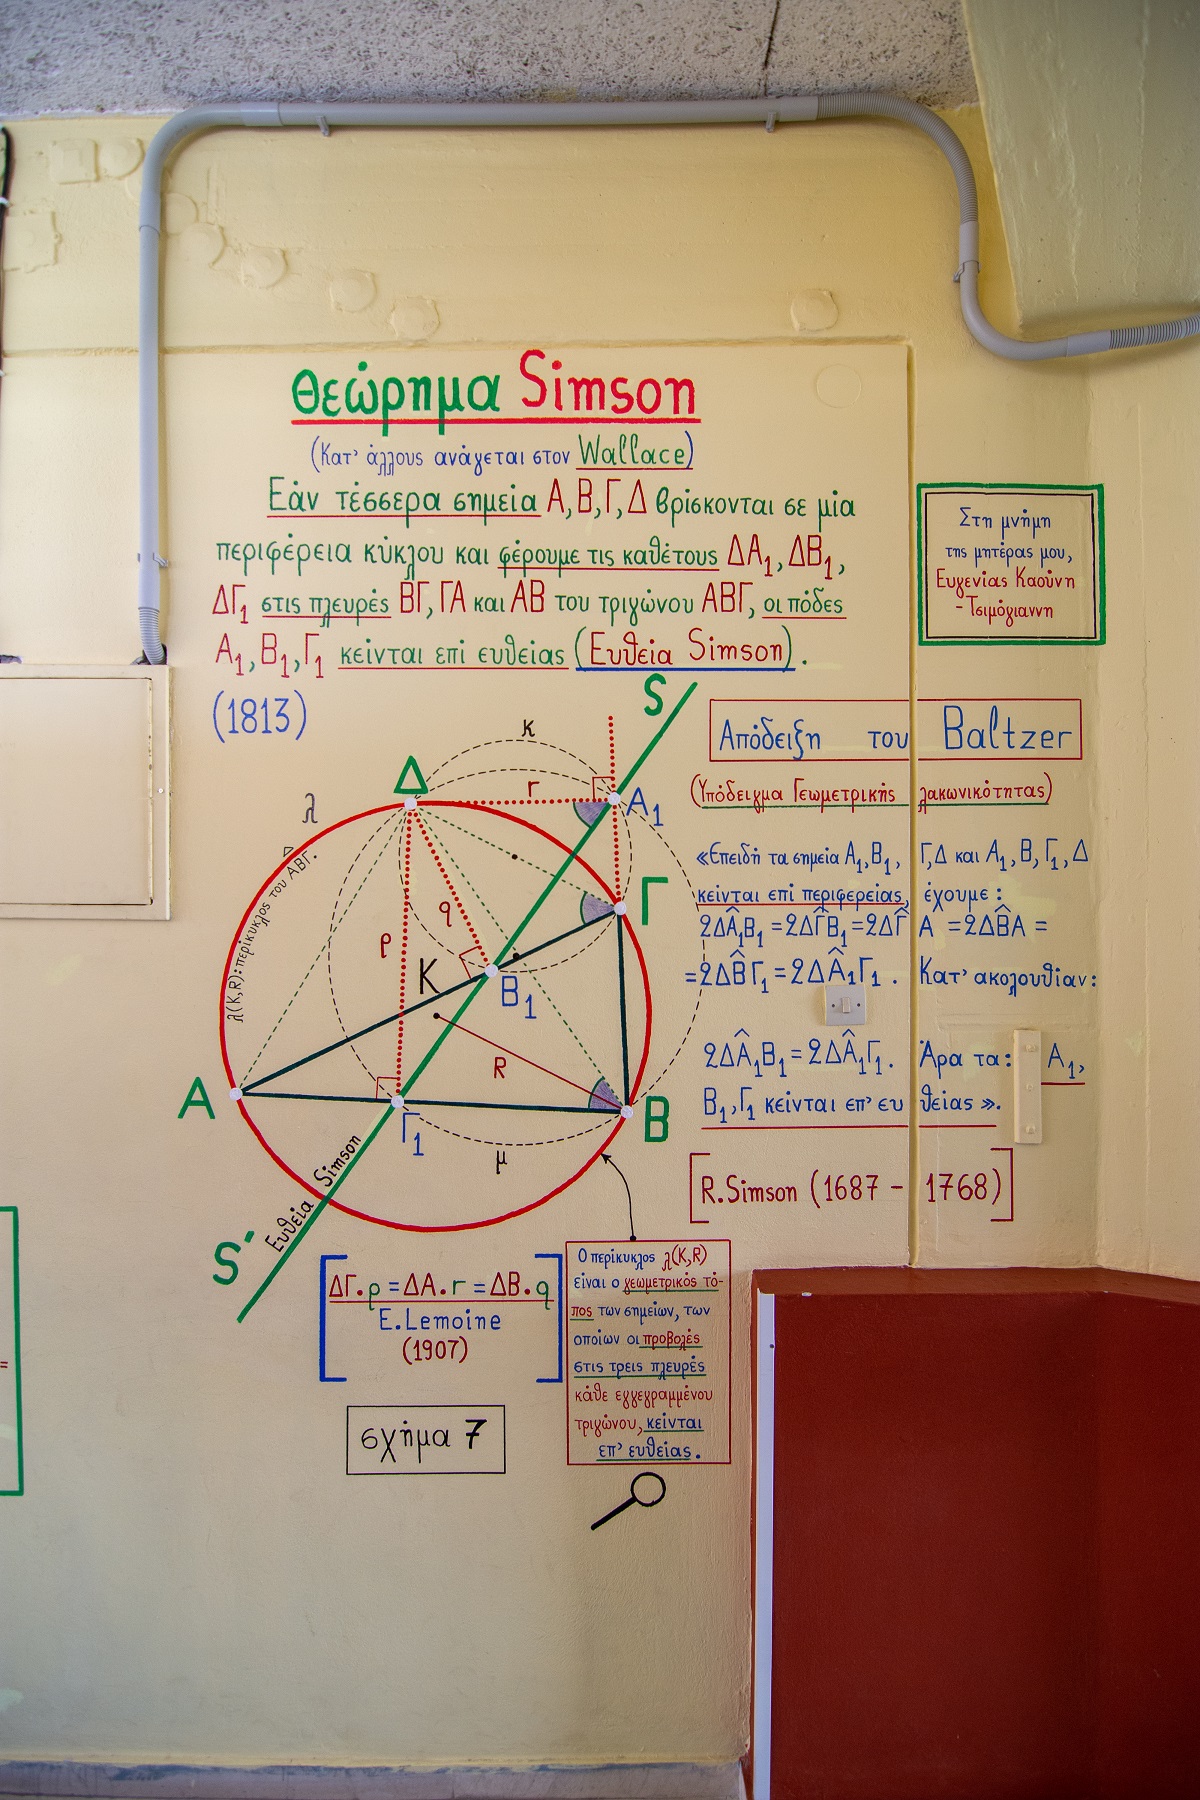 Θεώρημα Simson
(Κατ' άλλους ανάγεται στον Wallace)
Εάν τέσσερα σημεία Α,Β,Γ,Δ βρίσκονται σε μία
περιφέρεια κύκλου και φέρουμε τις καθέτους ΔΑ₁, ΔΒ₁,
ΔΓ₁ στις πλευρές ΒΓ, ΓΑ και ΑΒ του τριγώνου ΑΒΓ, οι πόδες
Α₁, Β₁, Γ₁ κείνται επί ευθείας (Ευθεία Simson).
(1813)
Στη μνήμη
της μητέρας μου,
Ευγενίας Καούνη
- Τσιμόγιαννη
S
κ
Δ
r
Α₁
λ
λ(Κ,R): περίκυκλος του ΑΒΓ.
Γ
q
ρ
Κ
Β₁
R
Α
Γ₁
Β
μ
Ευθεία Simson
S'
Απόδειξη του Baltzer
(Υπόδειγμα Γεωμετρικής λακωνικότητας)
«Επειδή τα σημεία Α₁, Β₁, Γ,Δ και Α₁, Β, Γ₁, Δ
κείνται επί περιφερείας, έχουμε:
2ΔÂ₁Β₁ = 2ΔΓ̂Β₁ = 2ΔΓ̂Α = 2ΔΒ̂Α =
= 2ΔΒ̂Γ₁ = 2ΔÂ₁Γ₁. Κατ' ακολουθίαν:
2ΔÂ₁Β₁ = 2ΔÂ₁Γ₁. Άρα τα: Α₁,
Β₁, Γ₁ κείνται επ' ευθείας».
[R.Simson (1687 - 1768)]
ΔΓ.ρ = ΔΑ.r = ΔΒ.q
E.Lemoine
(1907)
σχήμα 7
Ο περίκυκλος λ(Κ,R)
είναι ο γεωμετρικός τό-
πος των σημείων, των
οποίων οι προβολές
στις τρεις πλευρές
κάθε εγγεγραμμένου
τριγώνου, κείνται
επ' ευθείας.
=